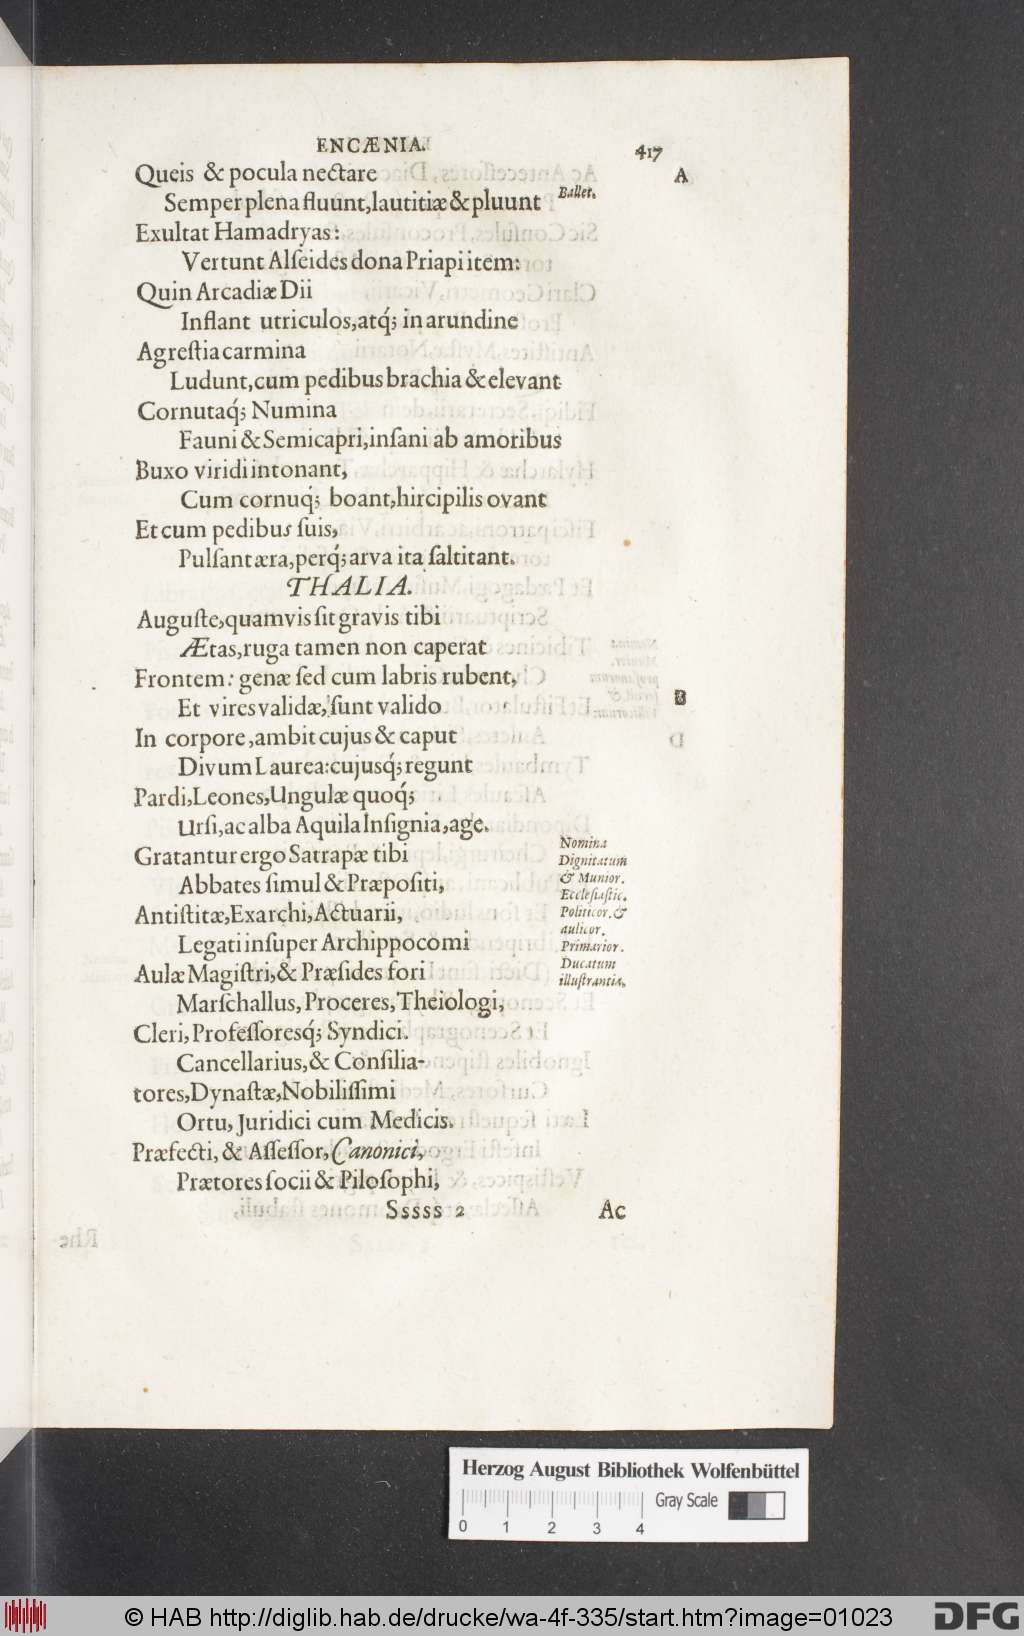 ENCÆNIA. 417
Queis & pocula nectare A
Semper plena fluunt, lautitiæ & pluunt Ballet.
Exultat Hamadryas:
Vertunt Alſeides dona Priapi item:
Quin Arcadiæ Dii
Inflant utriculos, atq́; in arundine
Agreſtia carmina
Ludunt, cum pedibus brachia & elevant
Cornutaq́; Numina
Fauni & Semicapri, inſani ab amoribus
Buxo viridi intonant,
Cum cornuq́; boant, hircipilis ovant
Et cum pedibus ſuis,
Pulſant æra, perq́; arva ita ſaltitant.
THALIA.
Auguſte, quamvis ſit gravis tibi
Ætas, ruga tamen non caperat
Frontem: genæ ſed cum labris rubent,
Et vires validæ, ſunt valido B
In corpore, ambit cujus & caput
Divum Laurea: cujusq́; regunt
Pardi, Leones, Ungulæ quoq́;
Urſi, ac alba Aquila Inſignia, age.
Gratantur ergo Satrapæ tibi
Abbates ſimul & Præpoſiti,
Antiſtitæ, Exarchi, Actuarii,
Legati inſuper Archippocomi
Aulæ Magiſtri, & Præſides fori
Marſchallus, Proceres, Theiologi,
Cleri, Profeſſoresq́; Syndici.
Cancellarius, & Conſilia-
tores, Dynaſtæ, Nobiliſſimi
Ortu, Juridici cum Medicis.
Præfecti, & Aſſeſſor, Canonici,
Prætores ſocii & Piloſophi,
Nomina
Dignitatum
& Munior.
Eccleſiaſtic.
Politicor. &
aulicor.
Primarior.
Ducatum
illuſtrantia.
Sssss 2 Ac
Herzog August Bibliothek Wolfenbüttel
Gray Scale
0 1 2 3 4
© HAB http://diglib.hab.de/drucke/wa-4f-335/start.htm?image=01023 DFG